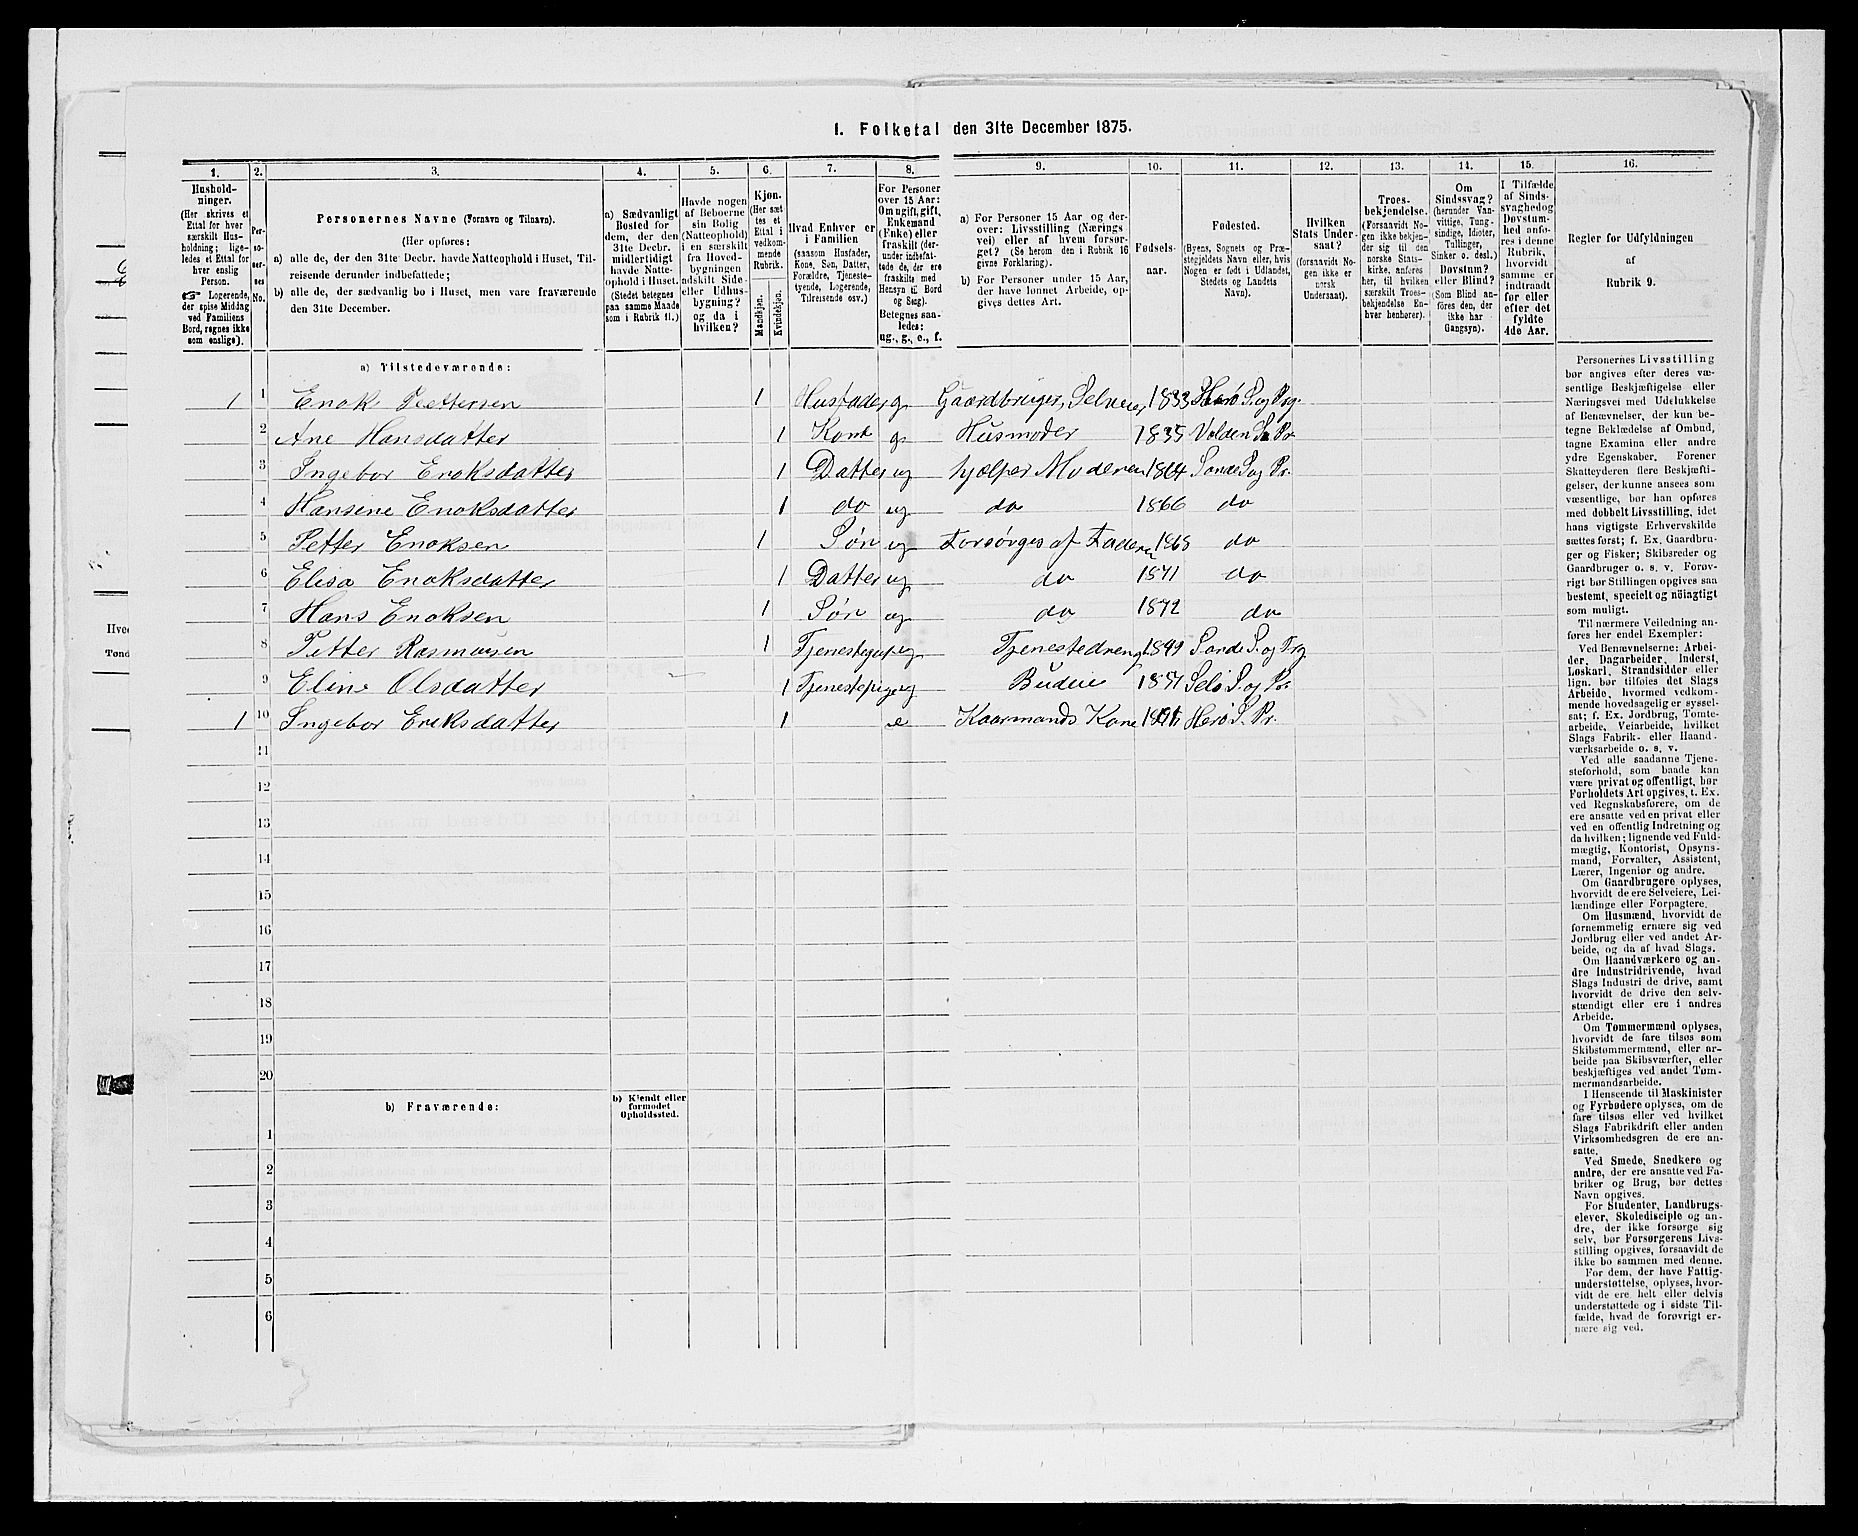 1. Folketal den 31te December 1875.
1. 2. 3. 4. 5. 6. 7. 8. 9. 10. 11. 12. 13. 14. 15. 16.
Hushold-
ninger.
(Her skrives et
Ettal for hver
særskilt Hus-
holdning; lige-
ledes et Ettal for
hver enslig
Person.
☞ Logerende,
der spise Middag
ved Familiens
Bord, regnes ikke
som enslige).
Per-
so-
ner-
nes
No.
Personernes Navne (Fornavn og Tilnavn).
(Her opføres:
a) alle de, der den 31te Decbr. havde Natteophold i Huset, Til-
reisende derunder indbefattede;
b) alle de, der sædvanlig bo i Huset, men vare fraværende
den 31te December.
a) Sædvanligt
Bosted for
dem, der den
31te Decbr.
midlertidigt
havde Natte-
ophold i Huset.
(Stedet betegnes
paa samme Maade
som i Rubrik 11.)
Havde nogen
af Beboerne
sin Bolig
(Natteophold)
i en særskilt
fra Hoved-
bygningen
adskilt Side-
eller Udhus-
bygning?
og da i
hvilken?
Kjøn.
(Her sæt-
tes et
Ettal i
vedkom-
mende
Rubrik.
Mandkjøn.
Kvindekjøn.
Hvad Enhver er
i Familien
(saasom Husfader,
Kone, Søn, Datter,
Forældre, Tjeneste-
tyende, Logerende,
Tilreisende osv.)
For Personer
over 15 Aar:
Om ugift, gift,
Enkemand
(Enke) eller
fraskilt (der-
under indbefat-
tede de, der ere
fraskilte med
Hensyn til Bord
og Seng).
Betegnes saa-
ledes:
ug., g., e., f.
a) For Personer 15 Aar og der-
over: Livsstilling (Nærings
vei) eller af hvem forsør-
get? (Se herom den i Rubrik 16
givne Forklaring).
b) For Personer under 15 Aar,
der have lønnet Arbeide, op-
gives dettes Art.
Fødsels-
aar.
Fødested.
(Byens, Sognets og Præ-
stegjeldets Navn eller, hvis
Nogen er født i Udlandet,
Stedets og Landets
Navn).
Hvilken
Stats Under-
saat?
(forsaavidt No-
gen ikke er
norsk
Undersaat).
Troes-
bekjendelse.
(Forsaavidt No-
gen ikke bekjen-
der sig til den
norske Stats-
kirke, anføres
her, til hvilken
særskilt Troes-
bekjendelse En-
hver henhører).
Om
Sindssvag?
(herunder Van-
vittige, Tung-
sindige, Idioter,
Tullinger,
Sinker o. desl.)
Døvstum?
eller Blind?
(Som Blind an-
føres den, der
ikke har
Gangsyn).
I Tilfælde
af Sinds-
svaghed og
Døvstum-
hed anfø-
res i denne
Rubrik,
hvorvidt
samme er
indtraadt
før eller
efter det
fyldte
4de Aar.
Regler for Udfyldningen
af
Rubrik 9.
a) Tilstedeværende:
1 1 Enok Pettersen 1 Husfader g Gaardbruger, Selveier 1833 Herø S. og Prg.
2 Ane Hansdatter 1 Kone g Husmoder 1835 Volden S Pr
3 Ingebor Enoksdatter 1 Datter ug hjelper Moderen 1864 Sande S og Pr.
4 Hansine Enoksdatter 1 do ug do 1866 do
5 Petter Enoksen 1 Søn ug Forsørges af Faderen 1868 do
6 Elisa Enoksdatter 1 Datter ug do 1871 do
7 Hans Enoksen 1 Søn ug do 1872 do
8 Petter Rasmusen 1 ug Tjenestedreng Sande S. og Prg
9 Eline Olsdatter 1 Tjenestepige ug Budeie Selø S. og Pr
1 10 Ingebor Eriksdatter 1 e Kaarmands Kone Herø S. Pr.
11
12
13
14
15
16
17
18
19
20
b) Fraværende:
b) Kjendt eller
formodet
Opholdssted.
1
2
3
4
5
6
Personernes Livsstilling
bør angives efter deres væ-
sentlige Beskjæftigelse eller
Næringsvei med Udelukkelse
af Benævnelser, der kun be-
tegne Beklædelse af Ombud,
tagne Examina eller andre
ydre Egenskaber. Forener
Skatteyderen flere Beskjæfti-
gelser, der kunne ansees som
væsentlige, bør han opføres
med dobbelt Livsstilling, idet
hans vigtigste Erhvervskilde
sættes først; f. Ex. Gaardbru-
ger og Fisker; Skibsreder og
Gaardbruger o. s. v. Forøv-
rigt bør Stillingen opgives saa
bestemt, specielt og nøiagtigt
som muligt.
Til nærmere Veiledning an-
føres her endel Exempler:
Ved Benævnelserne: Arbei-
der, Dagarbeider, Inderst,
Løskarl, Strandsidder eller
lign. bør tilføies det Slags
Arbeide, hvormed vedkom-
mende hovedsagelig er syssel-
sat; f. Ex. Jordbrug, Tomte-
arbeide, Veiarbeide, hvilket
Slags Fabrik- eller Haand-
værksarbeide o. s. v.
Ved alle saadanne Tjene-
steforhold, som baade kan
være privat og offentligt, bør
Forholdets Art opgives, t. Ex.
ved Regnskabsførere, om de
ere ansatte ved en privat eller
ved en offentlig Indretning og
da hvilken; lignende ved Fuld-
mægtig, Kontorist, Opsyns-
mand, Forvalter, Assistent,
Lærer, Ingeniør og andre.
Om Gaardbrugere oplyses,
hvorvidt de ere Selveiere, Lei-
lændinge eller Forpagtere.
Om Husmænd, hvorvidt de
fornemmelig ernære sig ved
Jordbrug eller ved andet Ar-
beide, og da af hvad Slags.
Om Haandværkere og an-
dre Industridrivende, hvad
Slags Industri de drive, samt
hvorvidt de drive den selv-
stændigt eller ere i andres
Arbeide.
Om Tømmermænd oplyses,
hvorvidt de fare tilsøs som
Skibstømmermænd, eller ar-
beide paa Skibsværfter, eller
beskjæftiges ved andet Tøm-
mermandsarbeide.
I Henseende til Maskinister
og Fyrbødere oplyses, om de
fare tilsøs eller ved hvilket
Slags Fabrikdrift eller anden
Virksomhedsgren de ere an-
satte.
Ved Smede, Snedkere og
andre, der ere ansatte ved Fa-
briker og Brug, bør dettes
Navn opgives.
For Studenter, Landbrugs-
elever, Skoledisciple og an-
dre, der ikke forsørge sig
selv, bør Forsørgerens Livs-
stilling opgives, forsaavidt de
ikke bo sammen med denne.
For dem, der have Fattig-
understøttelse, oplyses, hvor-
vidt de ere helt eller delvis
understøttede og i sidste Til-
fælde, hvad de forøvrigt er-
nære sig ved.